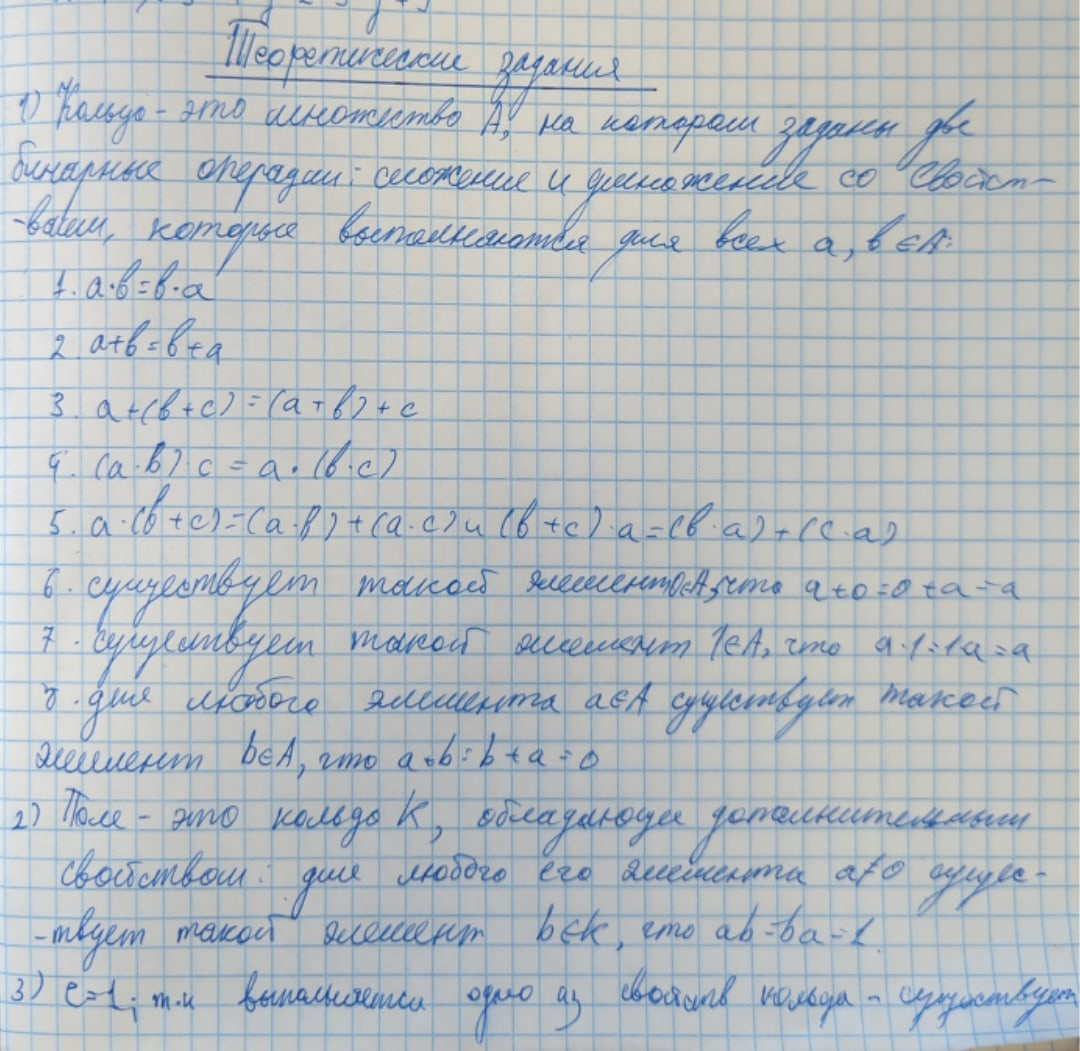 Теоретические задания
1) Кольцо - это множество A, на котором заданы две
бинарные операции: сложение и умножение со свойст-
-вами, которые выполняются для всех a, b ∈ A:
1. a·b=b·a
2. a+b=b+a
3. a+(b+c)=(a+b)+c
4. (a·b)·c=a·(b·c)
5. a·(b+c)=(a·b)+(a·c) и (b+c)·a=(b·a)+(c·a)
6. существует такой элемент 0∈A, что a+0=0+a=a
7. существует такой элемент 1∈A, что a·1=1·a=a
8. для любого элемента a∈A существует такой
элемент b∈A, что a+b=b+a=0
2) Поле - это кольцо K, обладающее дополнительным
свойством: для любого его элемента a≠0 сущес-
-твует такой элемент b∈K, что ab=ba=1.
3) e=1, т.к выполняется одно из свойств кольца - существует